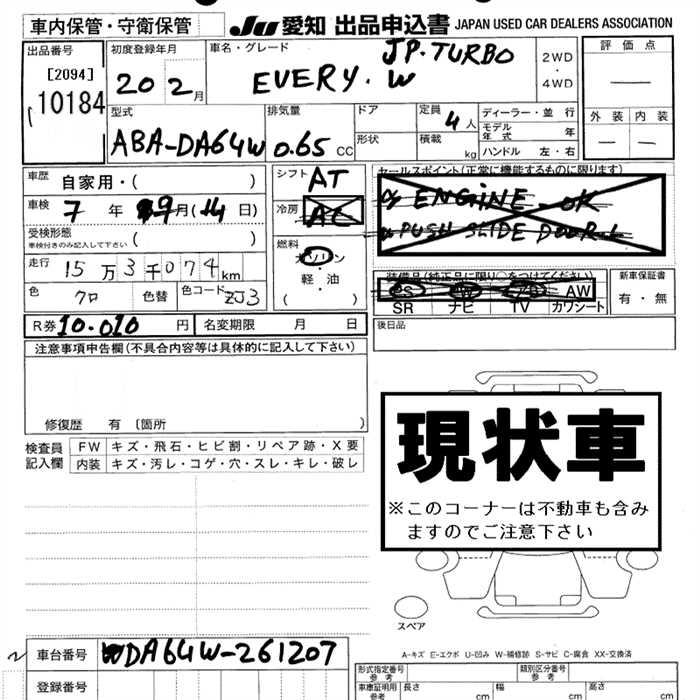 車内保管・守衛保管
JU 愛知 出品申込書 JAPAN USED CAR DEALERS ASSOCIATION
出品番号
[2094]
10184
初度登録年月
20 2月
車名・グレード
JP.TURBO
EVERY. W
2WD
・
4WD
評価点
—
外装 内装
— —
型式
ABA-DA64W
排気量
0.65 CC
ドア
形状
定員
4人
積載
kg
ディーラー・並行
モデル年式 年
ハンドル 左・右
車歴 自家用・( )
車検 7年 9月(14日)
受検形態
車検付きのみ記入して下さい ( )
走行 15万3千074km
色 クロ 色替 色コード ZJ3
シフト AT
冷房 AC
燃料
ガソリン
・
軽・油
( )
セールスポイント(正常に機能するものに限ります)
ENGINE - OK
PUSH SLIDE DOOR
装備品(純正品に限り○をつけてください)
PS AW
SR ナビ TV カワシート
新車保証書
有・無
後日品
R券 10.010 円 名変期限 月 日
注意事項申告欄(不具合内容等は具体的に記入して下さい)
修復歴 有 〔箇所 〕
検査員記入欄
FW キズ・飛石・ヒビ割・リペア跡・X要
内装 キズ・汚レ・コゲ・穴・スレ・キレ・破レ
現状車
※このコーナーは不動車も含み
ますのでご注意下さい
スペア
A-キズ E-エクボ U-凹み W-補修跡 S-サビ C-腐食 XX-交換済
車台番号 DA64W-261207
登録番号
形式指定番号
参考
類別区分番号
参考
車庫証明用
参考
長さ cm
幅 cm
高さ cm